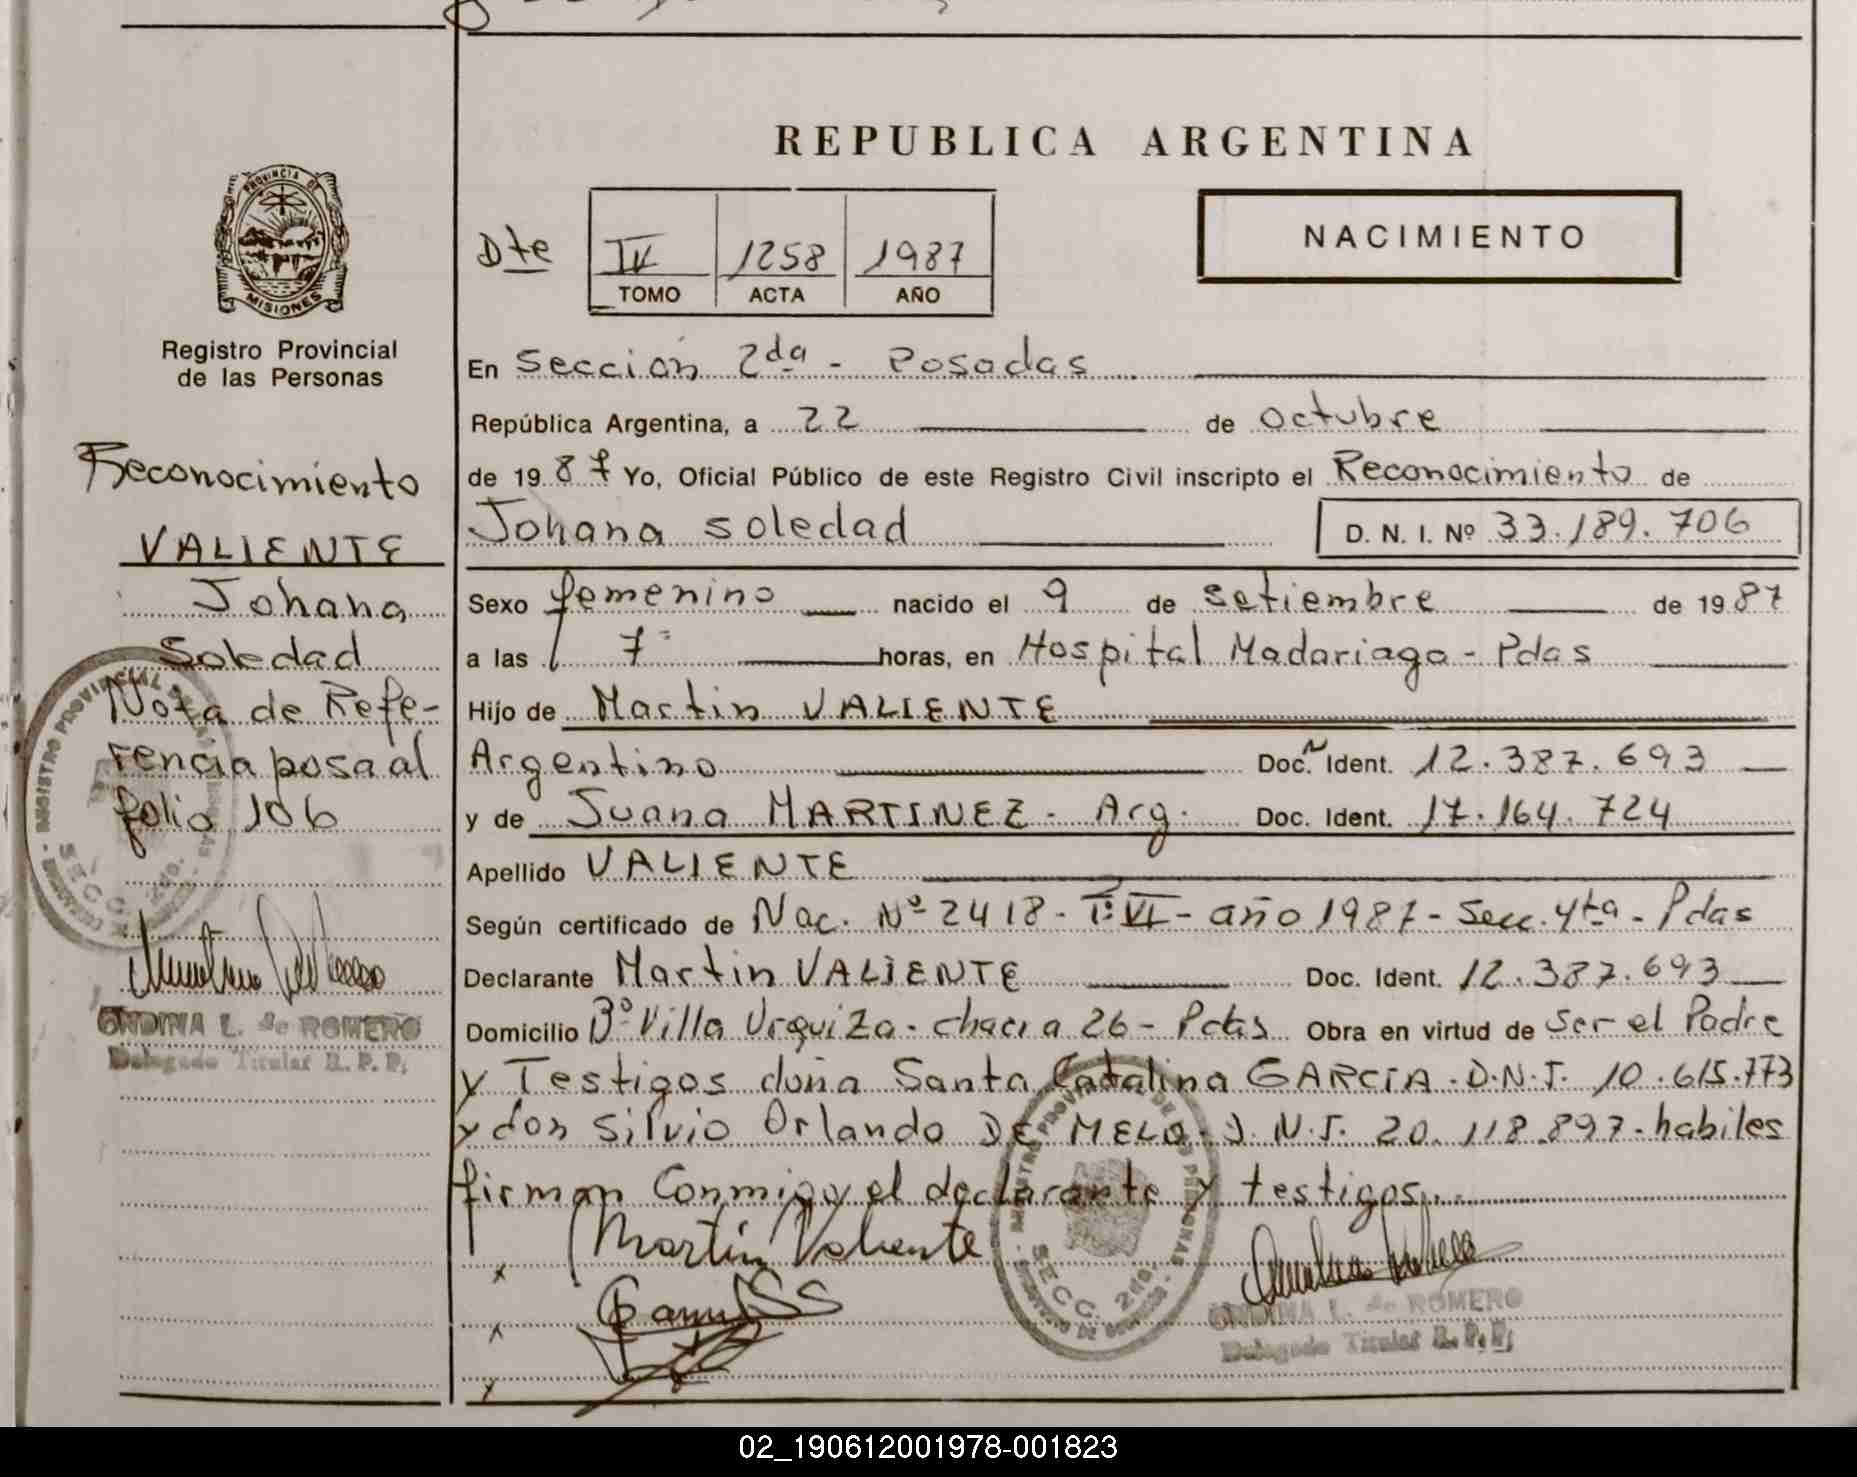 REPUBLICA ARGENTINA
PROVINCIA DE
MISIONES
Registro Provincial
de las Personas
Reconocimiento
VALIENTE
Johana
Soledad
Nota de Refe-
rencia posa al
folio 106
ONDINA L. de ROMERO
Delegado Titular R. P. P.
Dte
IV 1258 1987
TOMO ACTA AÑO
NACIMIENTO
En Sección 2da - Posadas
República Argentina, a 22 de octubre
de 1987 Yo, Oficial Público de este Registro Civil inscripto el Reconocimiento de
Johana Soledad D. N. I. Nº 33.189.706
Sexo femenino nacido el 9 de setiembre de 1987
a las 7 horas, en Hospital Madariaga - Pdas
Hijo de Martin VALIENTE
Argentino Doc. Ident. 12.387.693
y de Juana MARTINEZ - Arg. Doc. Ident. 17.164.724
Apellido VALIENTE
Según certificado de Nac. Nº 2418 - Tº VI - año 1987 - Secc. 4ta - Pdas
Declarante Martin VALIENTE Doc. Ident. 12.387.693
Domicilio Bº Villa Urquiza - chacra 26 - Pdas Obra en virtud de ser el Padre
y Testigos doña Santa Catalina GARCIA - D.N.I. 10.615.773
y don Silvio Orlando DE MELO - D.N.I. 20.118.897 - habiles
firman conmigo el declarante y testigos
Martin Valiente
SECC. 2da.
ONDINA L. de ROMERO
Delegado Titular R. P. P.
02_190612001978-001823